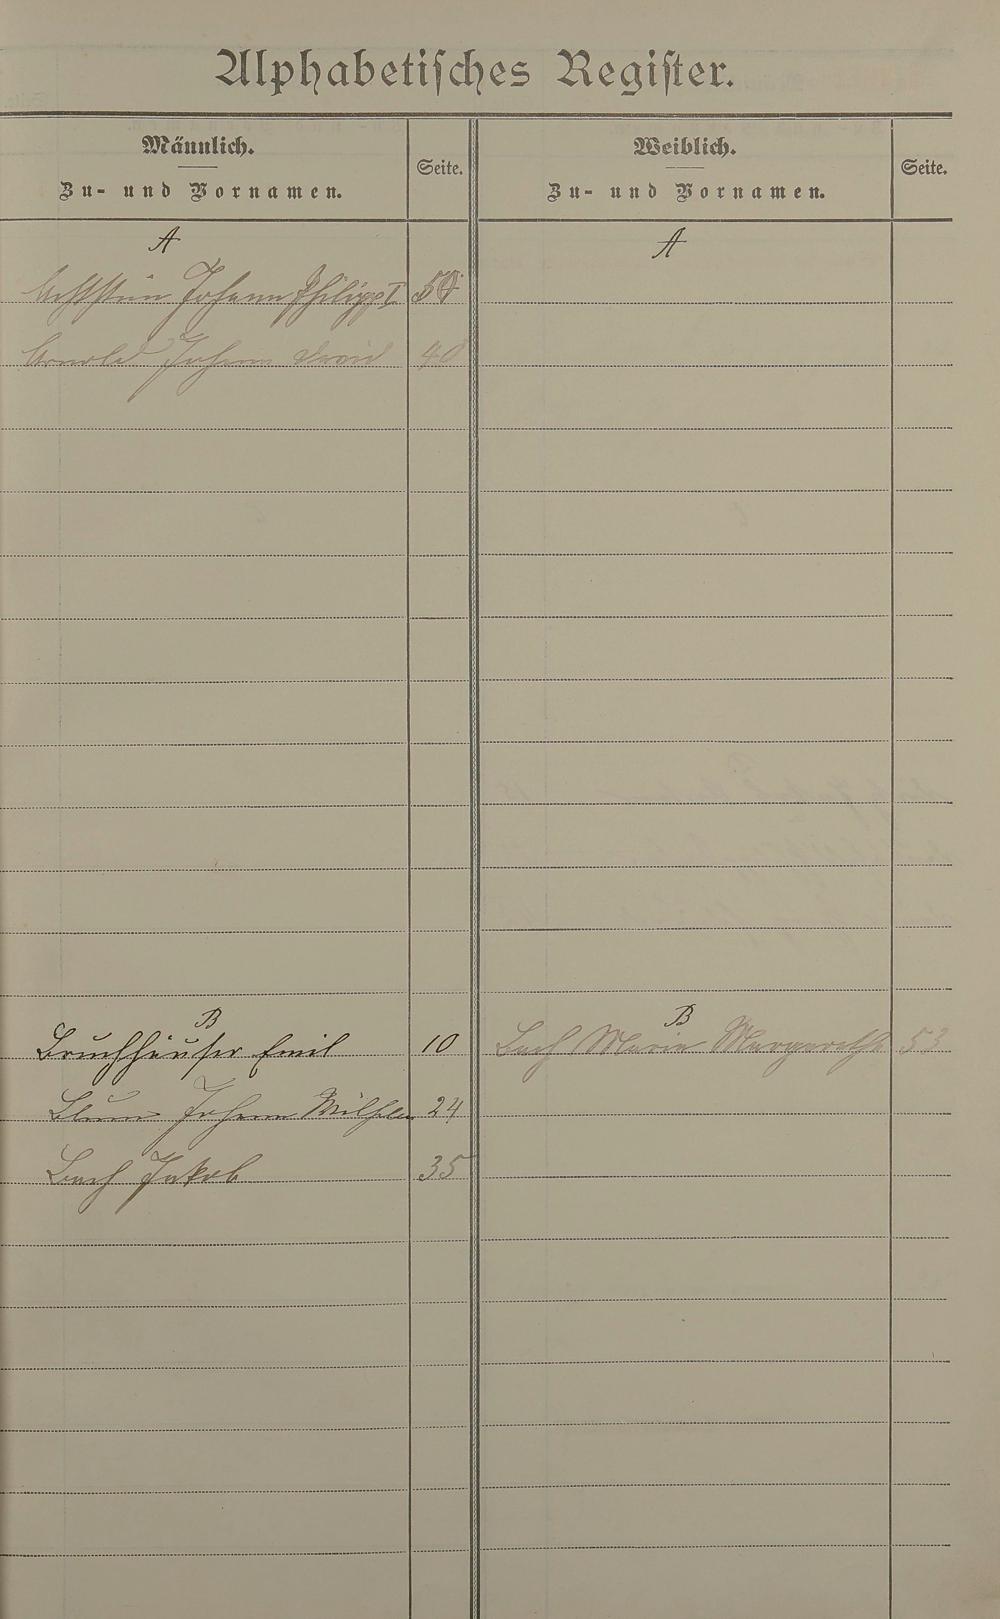 Alphabetisches Register.
Männlich.
Zu- und Vornamen.
Seite.
Weiblich.
Zu- und Vornamen.
Seite.
A
A
Achtstein Johann Philipp I.
Arnold Johann David 40
B
B
Bruchhäuser Emil 10
Bach Maria Margarethe 53
Blum Johann Wilhelm 24
Bach Jakob 35